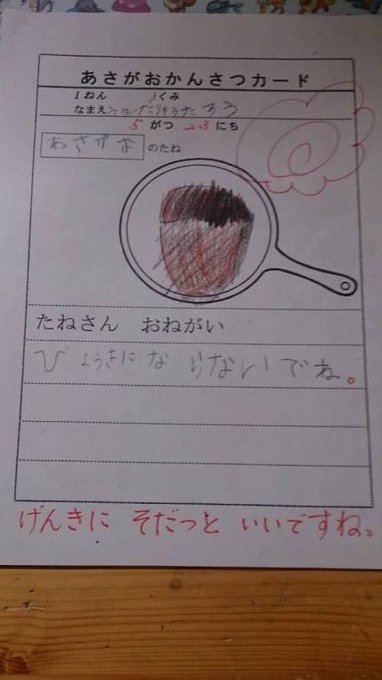 あさがおかんさつカード
1ねん くみ
なまえ
5がつ23にち
あさがおのたね
たねさん おねがい
びょうきにならないでね。
げんきに そだつと いいですね。